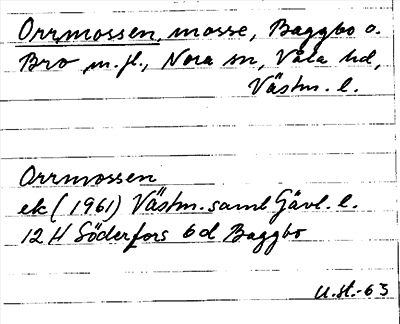 Orrmossen, mosse, Baggbo o.
Bro m.fl., Nora sn, Våla hd,
Västm. l.
Orrmossen
ek (1961) Västm. saml Gävl. l.
12 H Söderfors 6 d Baggbo
U.st.-63